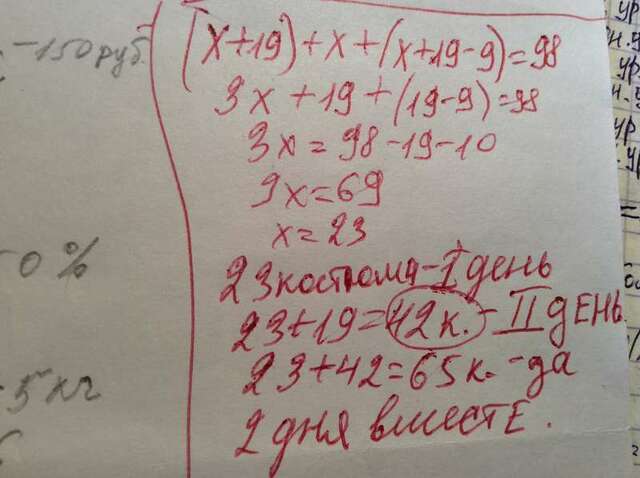 -150 руб.
(x+19)+x+(x+19-9)=98
3x+19+(19-9)=98
3x=98-19-10
3x=69
x=23
0%
23 костюма-I день
23+19=42к.-II дЕНЬ.
23+42=65к.-да
5 кг
2 дня вместЕ.